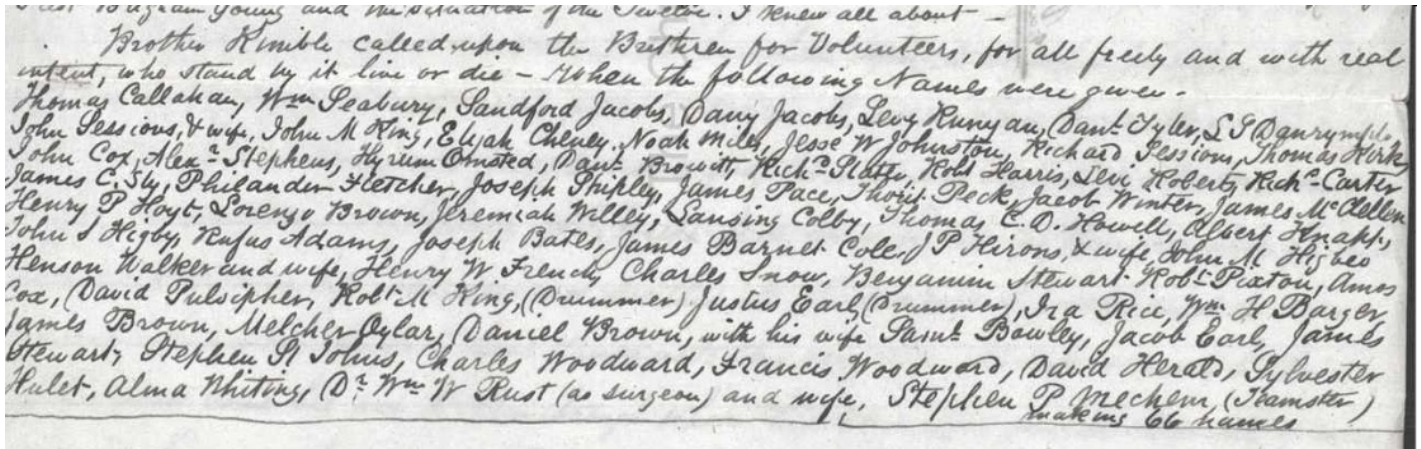 Brigham Young and the situation of the Twelve. I knew all about —
Brother Kimble called upon the Brethren for Volunteers, for all freely and with real
intent, who stand by it live or die — When the following Names were given.
Thomas Callahan, Wm Seabury, Sandford Jacobs, Dany Jacobs, Levy Runyan, Danl. Tyler, L S Danrymple,
John Sessions, & wife, John M King, Elijah Cheney, Noah Miles, Jesse W Johnston, Richard Sessions, Thomas Kirk,
John Cox, Alexr. Stephens, Hyrum Omsted, Danl. Browitt, Richd. Slater, Robt Harris, Levi Roberts, Richd. Carter
James C. Sly, Philander Fletcher, Joseph Shipley, James Pace, Peck, Jacob Winter, James McClellen
Henry P Hoyt, Lorenzo Brown, Jeremiah Willey, Lansing Colby, Thomas C. D. Howell, Albert Knapp,
John S Higby, Rufus Adams, Joseph Bates, James Barnet Cole, J P Hirons, & wife, John M Higbee
Henson Walker and wife, Henry W French, Charles Snow, Benjamin Stewart Robt. Pixton, Amos
Cox, David Pulsipher, Robt M King, (Drummer) Justus Earl (Drummer), Ira Rice, Wm. H Barger,
James Brown, Melcher Oylar, Daniel Brown, with his wife Saml. Bowley, Jacob Earl, James
Stewart, Stephen St Johns, Charles Woodward, Francis Woodward, David Herald, Sylvester
Hulet, Alma Whiting, Dr. Wm W Rust (as surgeon) and wife, Stephen P Mechem, (Teamster)
making 66 names